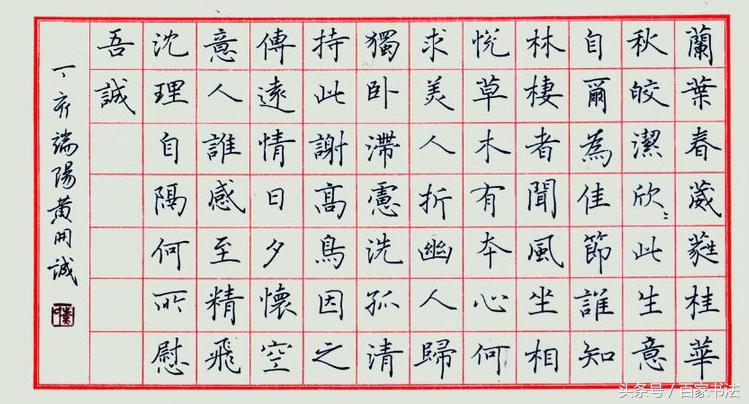 蘭葉春葳蕤桂華
秋皎潔欣〻此生意
自爾為佳節誰知
林棲者聞風坐相
悦草木有本心何
求美人折幽人歸
獨卧滯慮洗孤清
持此謝高鳥因之
傳遠情日夕懷空
意人誰感至精飛
沈理自隔何所慰
吾誠
丁亥端陽黄開誠
头条号 / 百家书法